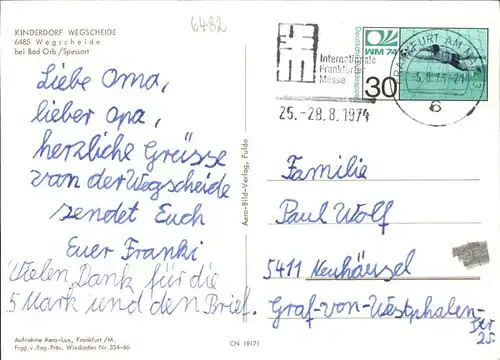 KINDERDORF WEGSCHEIDE
6485 Wegscheide
bei Bad Orb/Spessart
6482
Liebe Oma,
lieber Opa,
herzliche Grüsse
van der Wegscheide
sendet Euch
Euer Franki
Vielen Dank für die
5 Mark und den Brief.
Aufnahme Aero-Lux, Frankfurt/M.
Frgg.v.Reg.Präs. Wiesbaden Nr.354-66
Aero-Bild-Verlag, Fulda
CN 19171
Internationale
Frankfurter
Messe
25.-28.8.1974
WM 74
Deutsche Bundespost
30
FRANKFURT AM MAIN
6
Familie
Paul Wolf
5411 Neuhäusel
Graf-von-Westphalen-
Str
25.